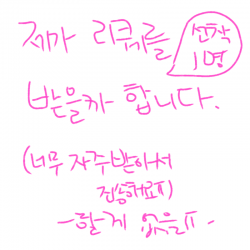 제가 리퀘를
선착
1명
받을까 합니다.
(너무 자주받아서
죄송해요ㅠ)
-할게 없을ㅠ-